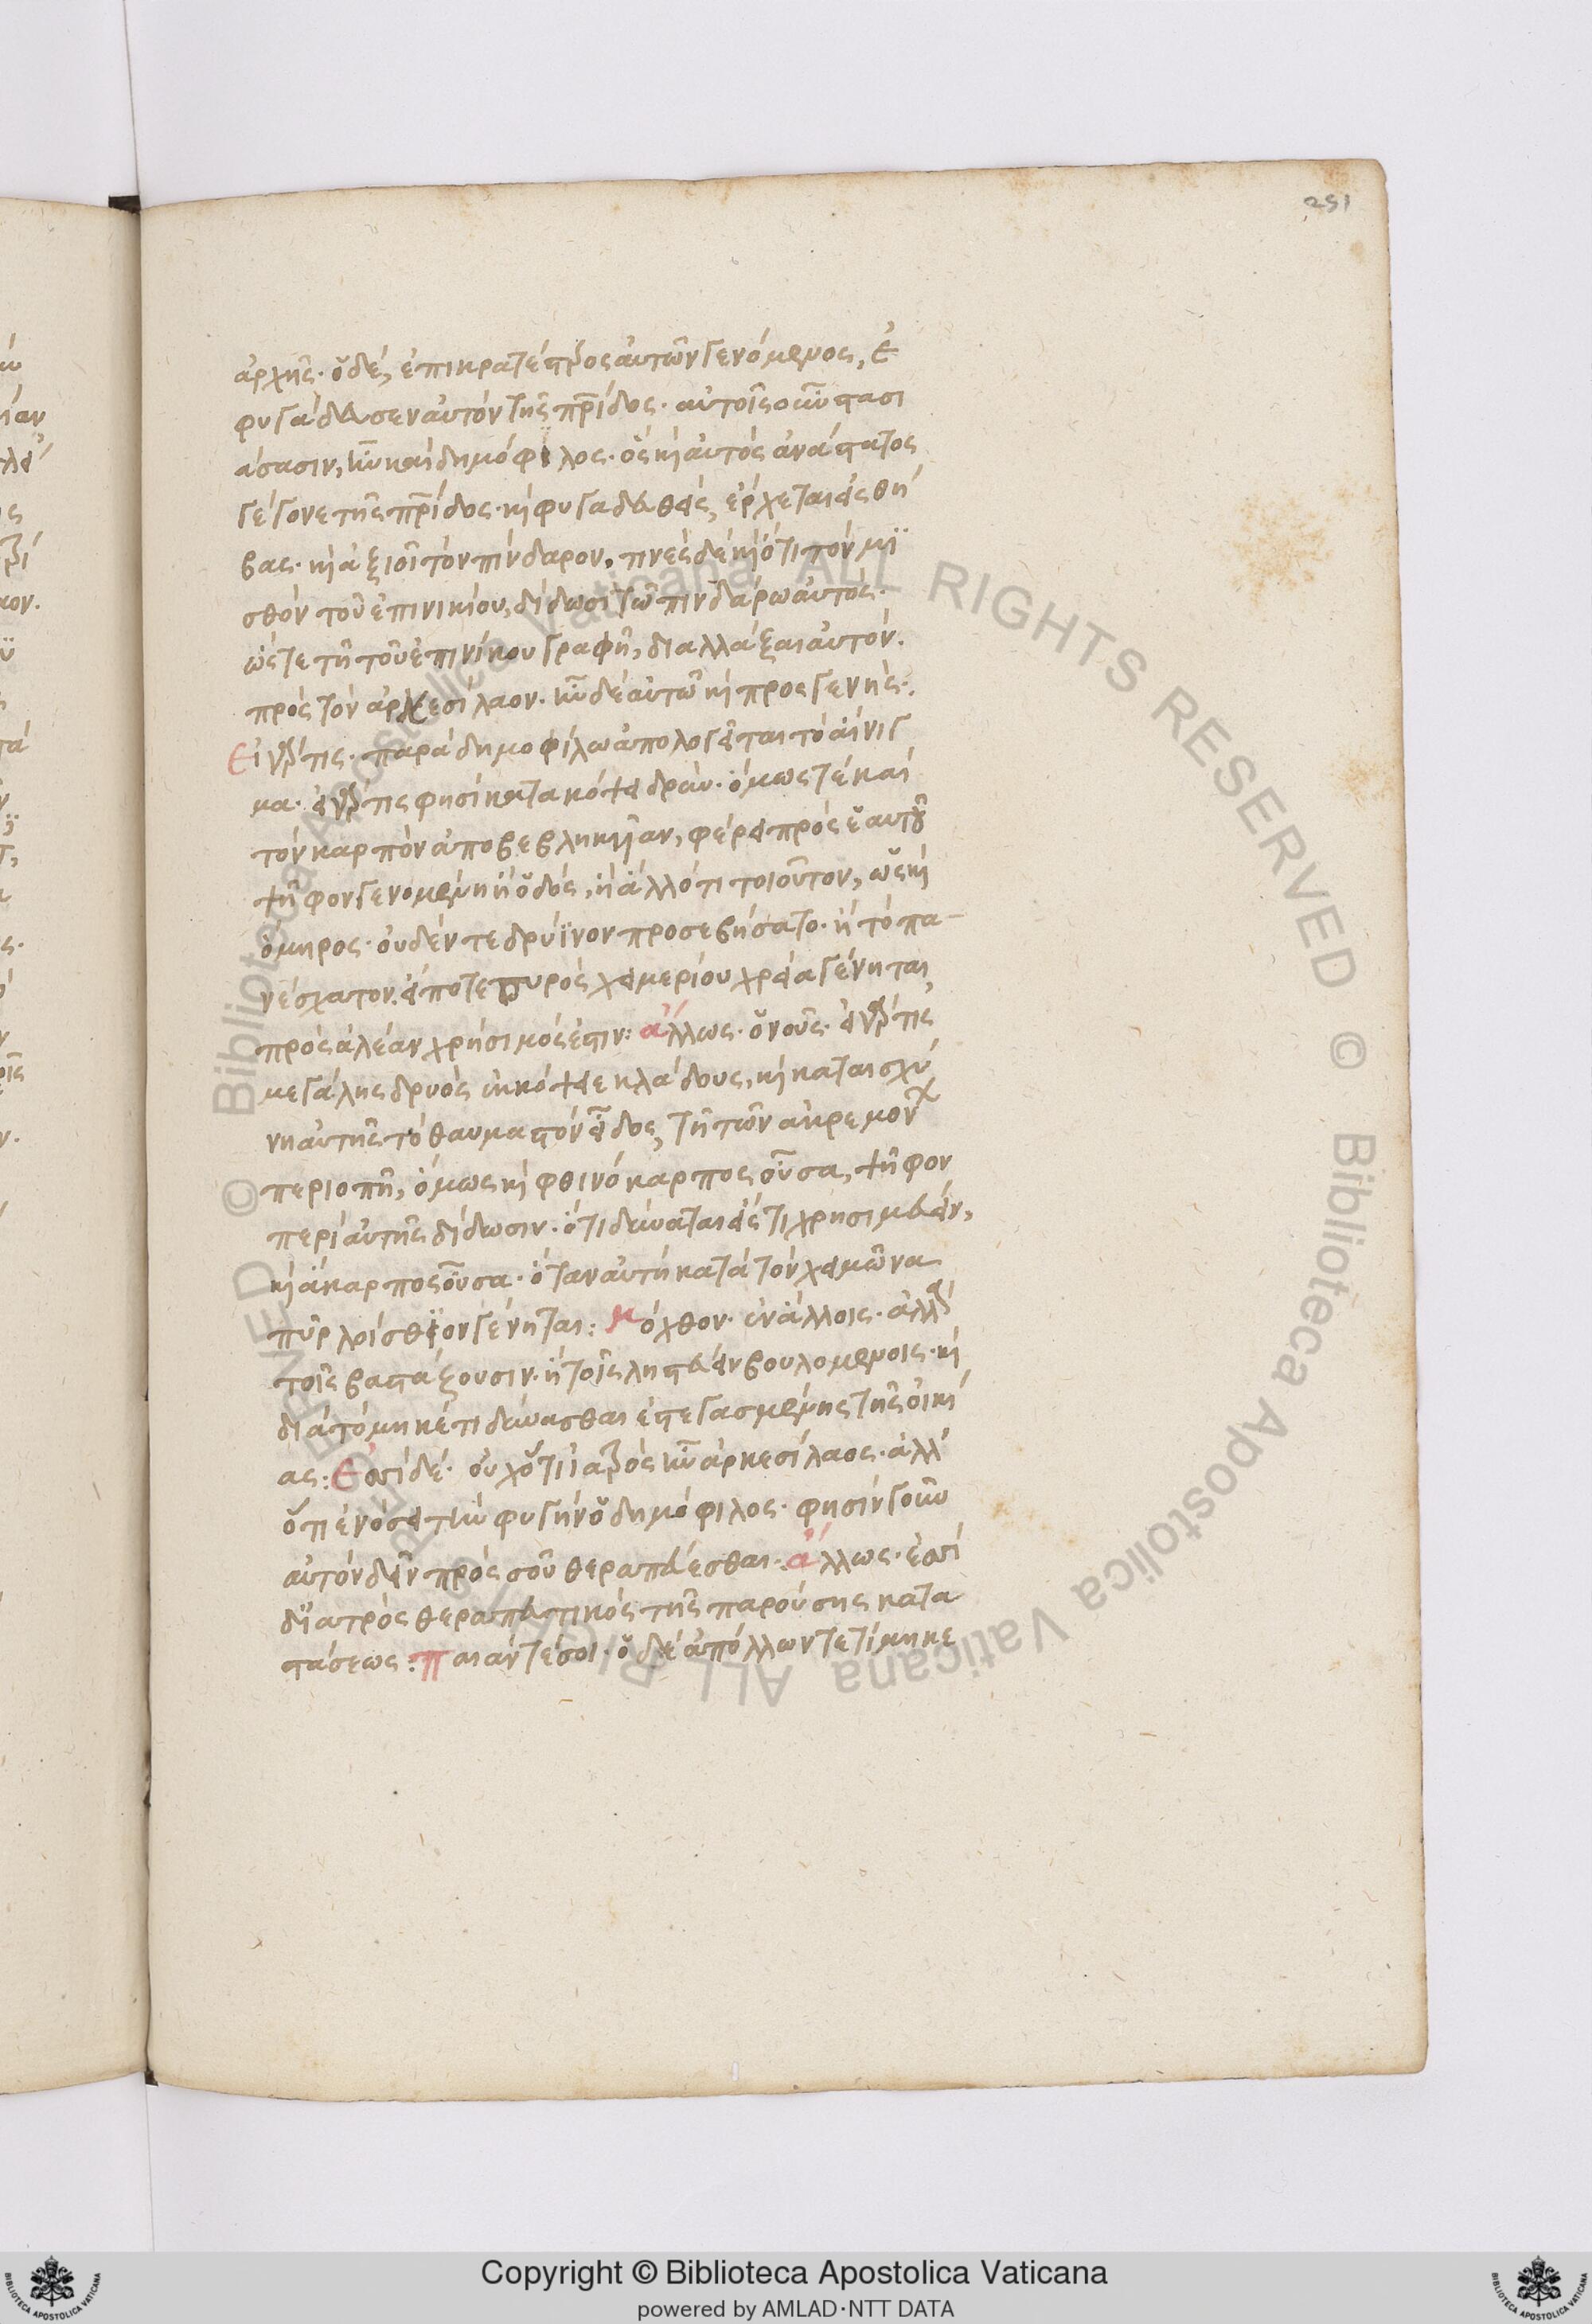 251
ἀρχῆς· ὁ δέ, ἐπικρατέστερος αὐτῶν γενόμενος, ἐ
φυγάδευσεν αὐτὸν τῆς πρίδος· αὐτοῖς οὖν στασι
άσασιν, ἦν καὶ δημόφιλος· ὃς κὶ αὐτὸς ἀνάστατος
γέγονε τῆς πρίδος· κὶ φυγαδευθεὶς, ἔρχεται εἰς θή
βας· κὶ ἀξιοῖ τὸν πίνδαρον, τινὲς δὲ κὶ ὅτι τὸν μι
σθὸν τοῦ ἐπινικίου, δίδωσι τῶ πινδάρω αὐτός·
ὥστε τῆ τοῦ ἐπινίκου γραφῆ, διαλλάξαι αὐτόν·
πρὸς τὸν ἀρκεσίλαον· ἦν δὲ αὐτῶ κὶ προςγενής·
Εἰ γάρ τις· παρὰ δημοφίλω ἀπολογεῖται τὸ αἴνιγ
μα· εἰ γάρ τις φησὶ κατακόψει δρῦν· ὅμως τὲ καὶ
τὸν καρπὸν ἀποβεβληκυῖαν, φέρει πρὸς ἑαυτοῦ
ψῆφον γενομένη ἡ ὁδός, ἢ ἄλλό τι τοιοῦτον, ὡς κὶ
ὅμηρος· οὐδέν τε δρύϊνον προσεβήσατο· ἢ τὸ πα-
νέσχατον· εἴποτε πυρὸς χειμερίου χρεία γένηται,
πρὸς ἀλέαν χρήσιμός ἐστιν: ἄλλως· ὁ νοῦς· εἰ γάρ τις
μεγάλης δρυὸς ἐκκόψειε κλάδους, κὶ καταισχύ
νη αὐτῆς τὸ θαυμαστὸν εἶδος, τῆ τῶν ἀκρεμόν
περιοπῆ, ὅμως κὶ φθινόκαρπος οὖσα, ψῆφον
περὶ αὐτῆς δίδωσιν· ὅτι δύναται εἴς τι χρησιμεύειν,
κὶ ἄκαρπος οὖσα· ὅταν αὐτὴ κατὰ τὸν χειμῶνα
πῦρ λοίσθϊον γένηται: μόχθον· ἐν ἄλλοις· ἀλλὰ
τοῖς βαστάζουσιν· ἢ τοῖς ληστεύειν βουλομένοις· κὶ
διὰ τὸ μηκέτι δύνασθαι ἐστεγασμένης τῆς οἰκί
ας: Ἐσσὶ δέ· οὐχ ὅτι ἰατρὸς ἦν ἀρκεσίλαος· ἀλλ'
ὅτι ἐνόσει τὴν φυγὴν ὁ δημόφιλος· φησὶν γοῦν
αὐτὸν δεῖν πρὸς σοῦ θεραπεύεσθαι: ἄλλως· ἐσσὶ
δ' ἰατρὸς θεραπευτικὸς τῆς παρούσης κατα
στάσεως: παιάν τέ σοι· ὁ δὲ ἀπόλλων τετίμηκε
Copyright © Biblioteca Apostolica Vaticana
powered by AMLAD·NTT DATA
© Biblioteca Apostolica Vaticana ALL RIGHTS RESERVED © Biblioteca Apostolica Vaticana ALL RIGHTS RESERVED